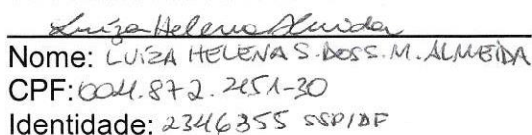 Luiza Helena Almeida
Nome: LUIZA HELENA S. DOS S. M. ALMEIDA
CPF: 004.872.251-30
Identidade: 2346355 SSP/DF